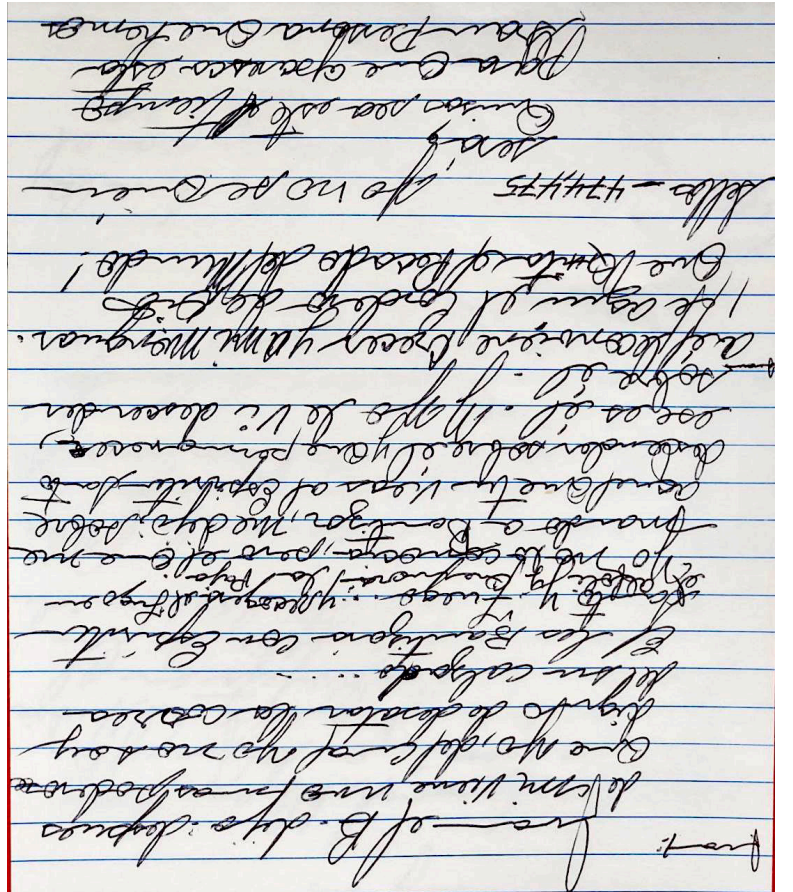 Juan el B. dijo: despues
de mi viene uno mas poderoso
Que yo, del cual yo no soy
digno de desatar la correa
del su calzado ....
El les Bautizara con Espiritu
Santo y fuego... y recogera el Trigo en
el alfoli y Quemara la Paja
yo no lo conocia, pero el Que me
mando a Bautizar, me dijo: sobre
aquel Que tu veas al Espiritu Santo
descender sobre el y Que permanece,
ese es él. y yo le vi descender
sobre él.
a él le conviene Crecer y a mi menguar.
He aqui el Cordero de Dios
Que Quita el Pecado del Mundo!
Sellos - 474,475 yo no se Quien
será,
Quisas sea este el tiempo
Para Que aparesca esta
Gran Persona Que hemos